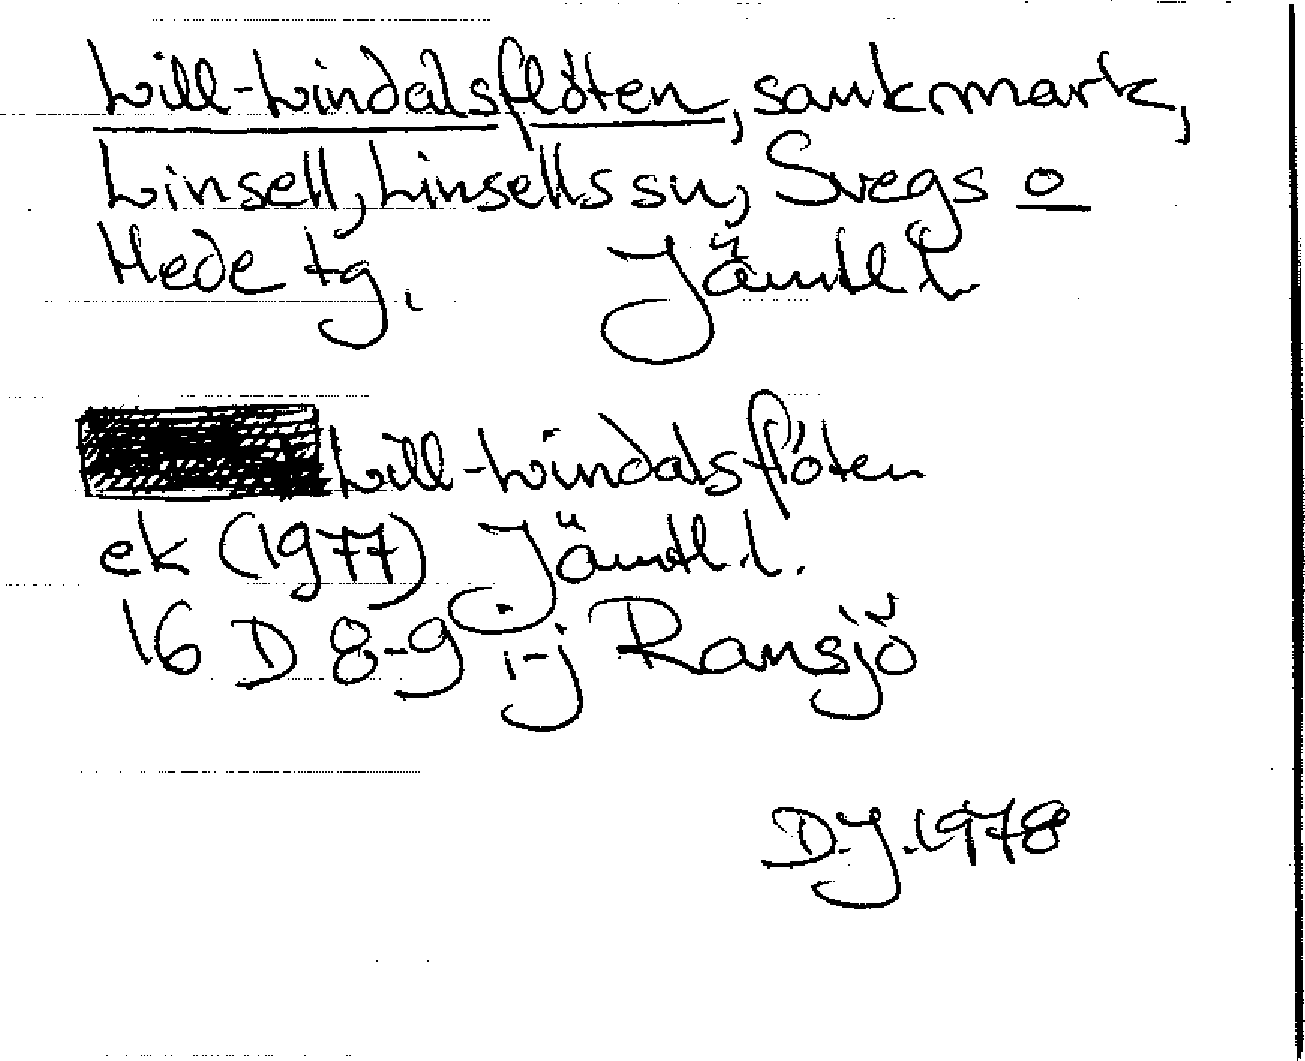 Lill-Lindalsflöten, sankmark,
Linsell, Linsells sn, Svegs o
Hede tg. Jämtl L
Lill-Lindalsflöten
ek (1977) Jämtl.l.
16 D 8-9 i-j Ransjö
D.J.1978